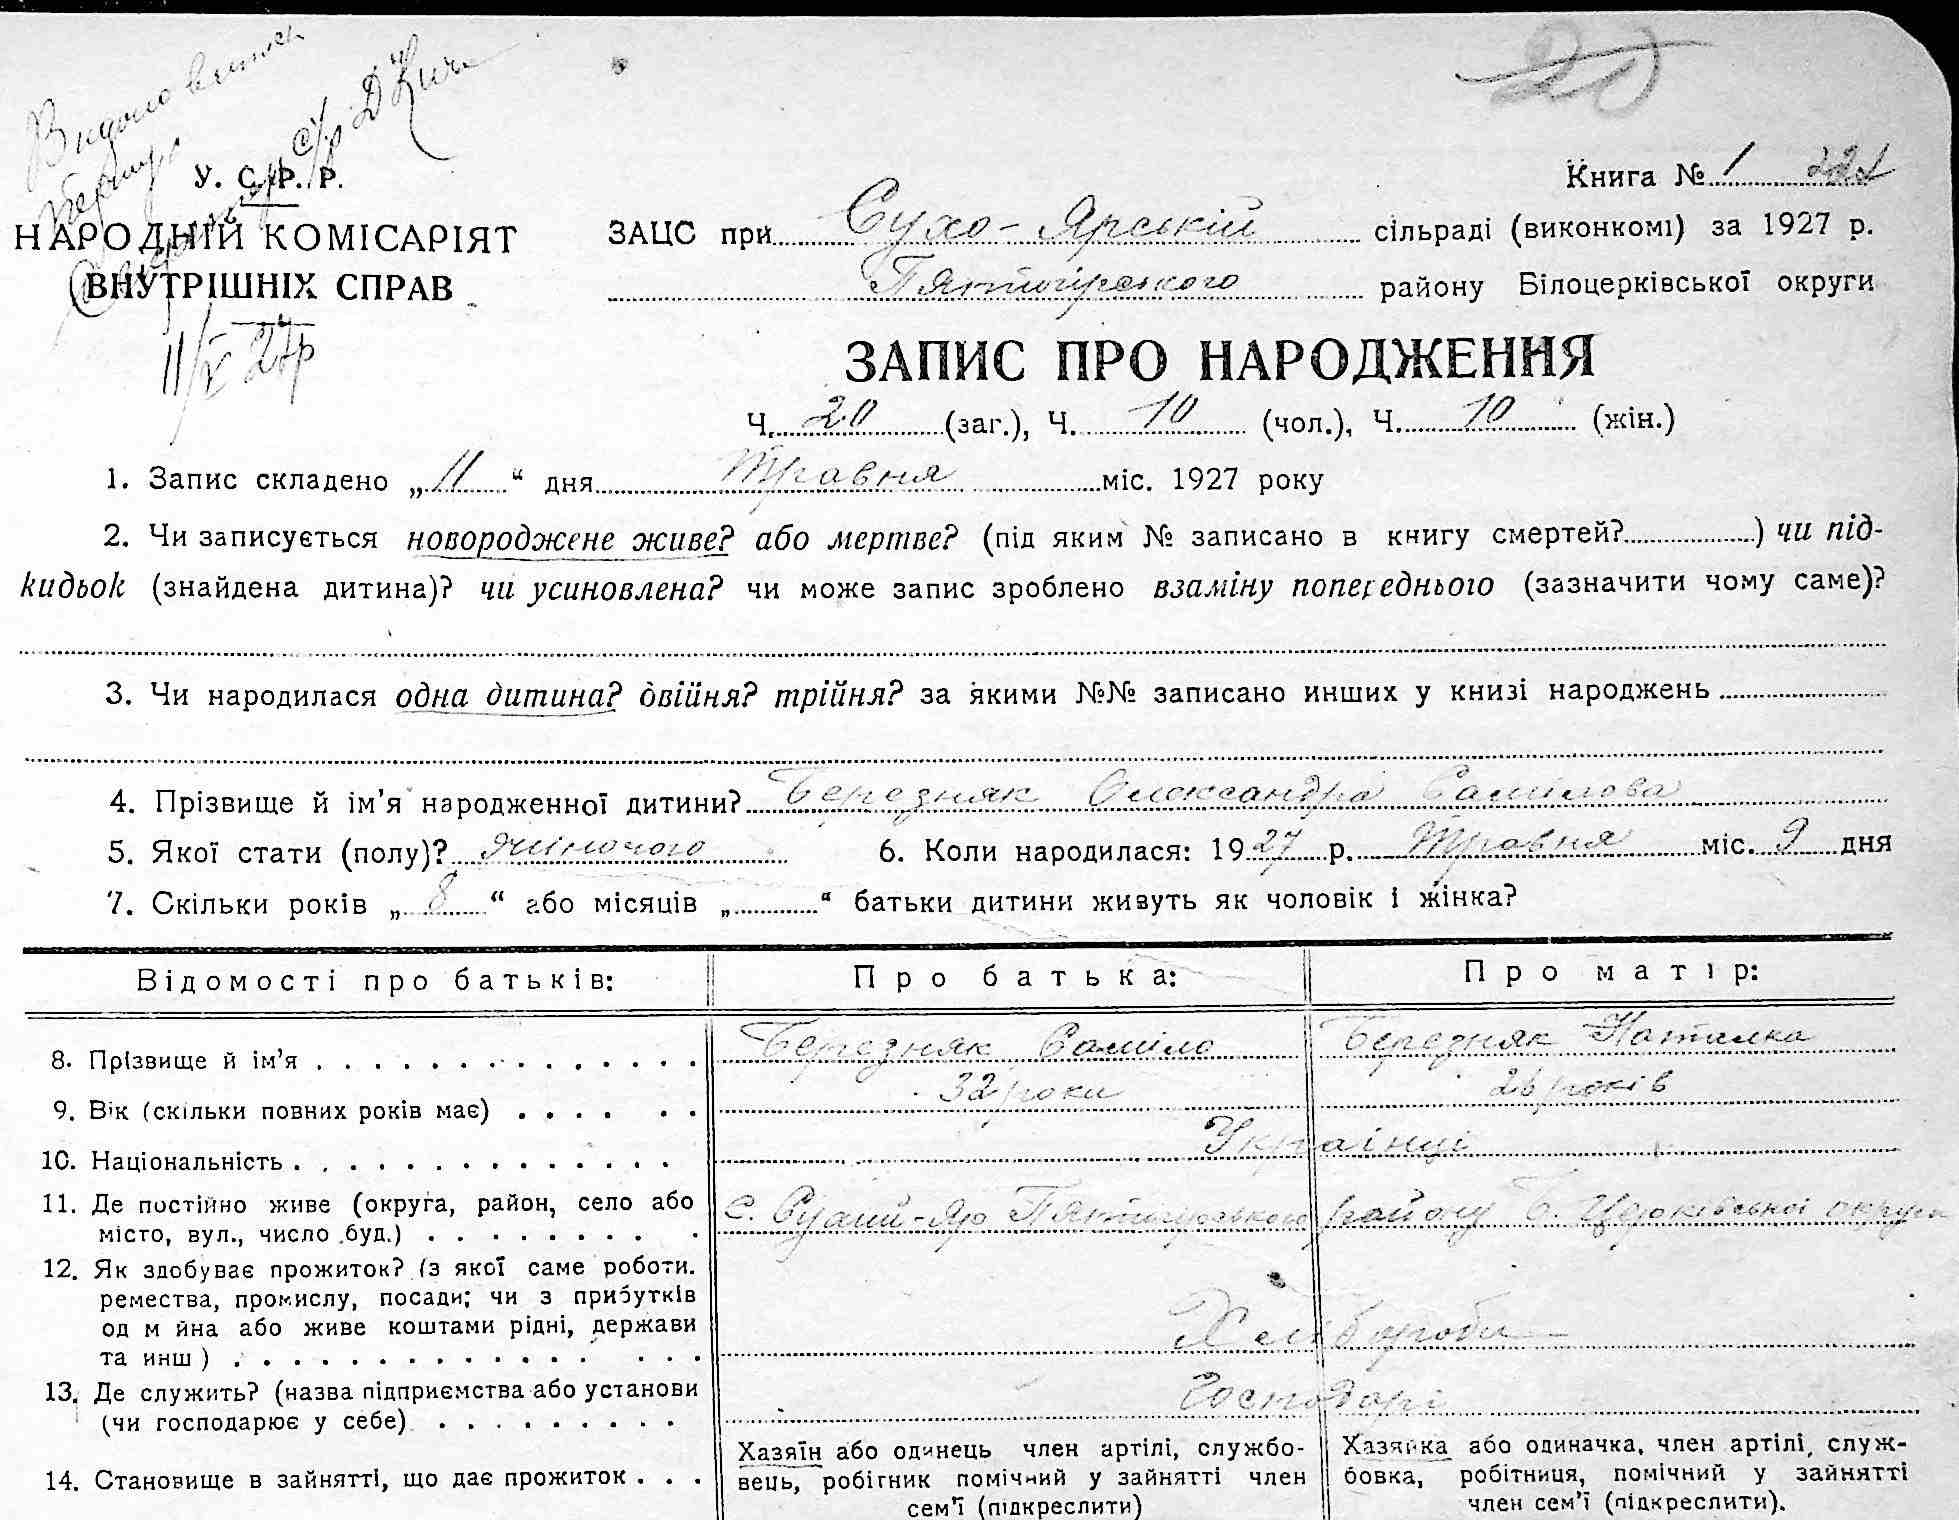 20
У. С. Р. Р.
Книга № 1
НАРОДНІЙ КОМІСАРІЯТ
ВНУТРІШНІХ СПРАВ
11/V 27р
ЗАЦС при Сухо-Ярській сільраді (виконкомі) за 1927 р.
Пятигірського району Білоцерківської округи
ЗАПИС ПРО НАРОДЖЕННЯ
Ч. 20 (заг.), Ч. 10 (чол.), Ч. 10 (жін.)
1. Запис складено „11“ дня Травня міс. 1927 року
2. Чи записується новороджене живе? або мертве? (під яким № записано в книгу смертей?) чи під-
кидьок (знайдена дитина)? чи усиновлена? чи може запис зроблено взаміну попереднього (зазначити чому саме)?
3. Чи народилася одна дитина? двійня? трійня? за якими №№ записано инших у книзі народжень
4. Прізвище й ім’я народженної дитини? Березняк Олександра Самілова
5. Якої стати (полу)? жіночого 6. Коли народилася: 1927 р. Травня міс. 9 дня
7. Скільки років „8“ або місяців „ “ батьки дитини живуть як чоловік і жінка?
Відомості про батьків: Про батька: Про матір:
8. Прізвище й ім’я Березняк Саміло Березняк Наталка
9. Вік (скільки повних років має) 32 роки 26 років
10. Національність Українці
11. Де постійно живе (округа, район, село або
місто, вул., число буд.) с. Сухий-Яр Пятигірського району Б. Церківської округи
12. Як здобуває прожиток? (з якої саме роботи.
ремества, промислу, посади; чи з прибутків
од м йна або живе коштами рідні, держави
та инш) Хлібороби
13. Де служить? (назва підприємства або установи
(чи господарює у себе) Господарі
14. Становище в зайнятті, що дає прожиток
Хазяїн або одинець член артілі, службо-
вець, робігник помічний у зайнятті член
сем’ї (підкреслити)
Хазяйка або одиначка, член артілі, служ-
бовка, робітниця, помічний у зайнятті
член сем’ї (підкреслити).